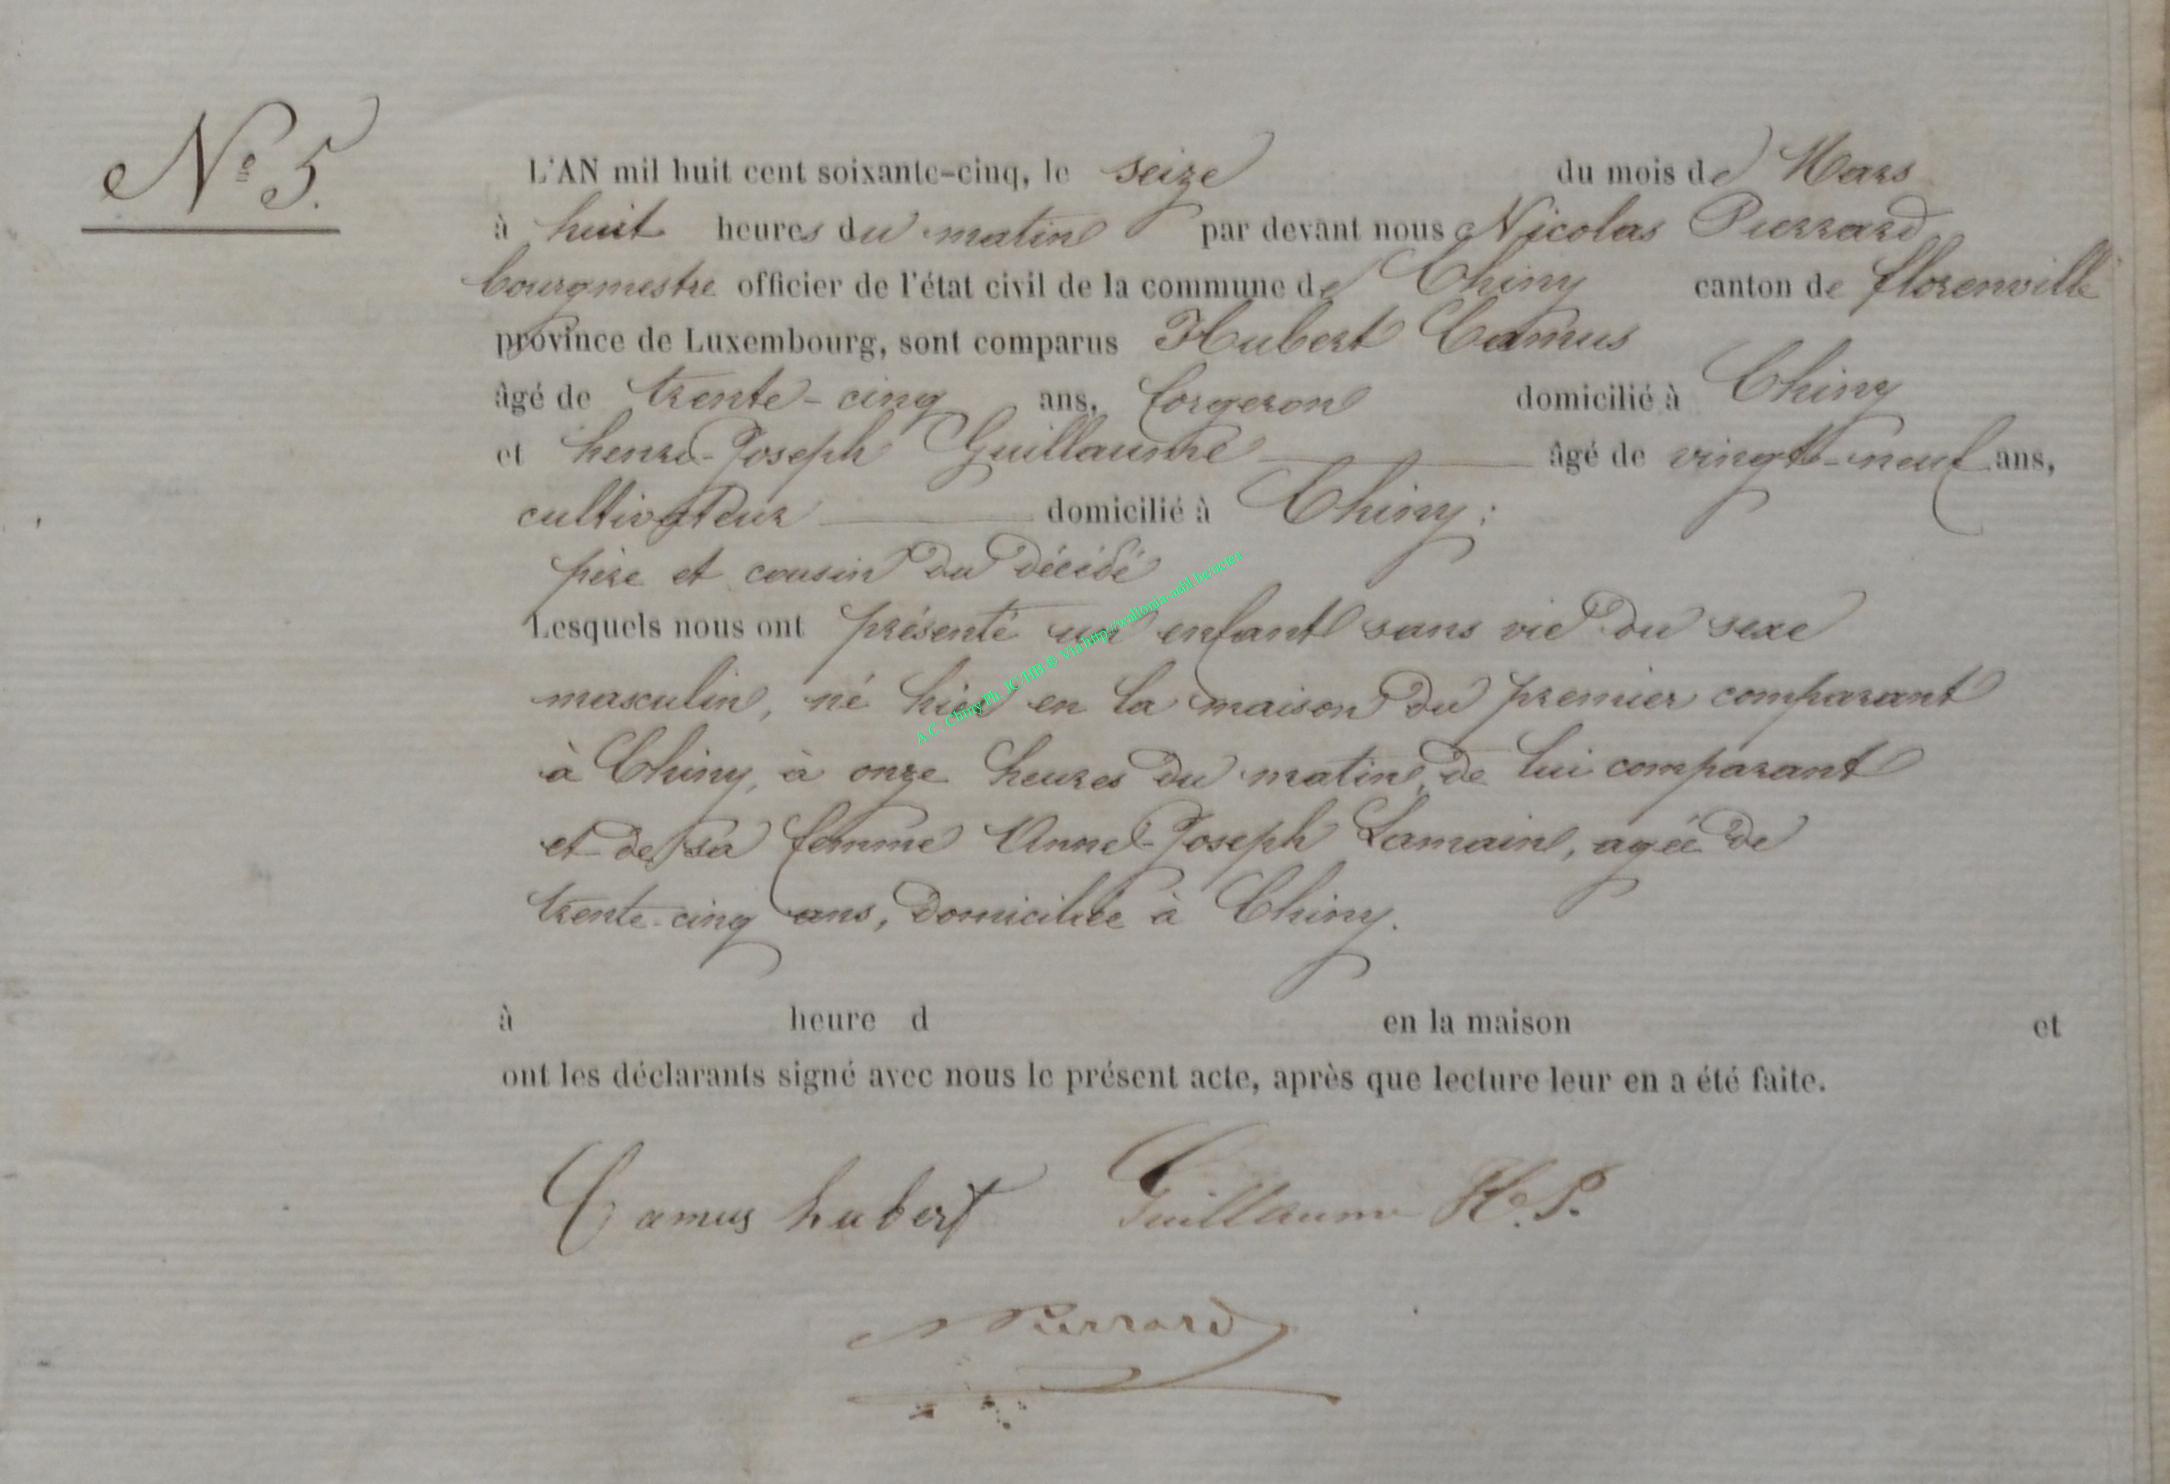 N° 5.
L'AN mil huit cent soixante-cinq, le seize du mois de Mars
à huit heures du matin par devant nous Nicolas Pierrard
bourgmestre officier de l'état civil de la commune de Chiny canton de florenville
province de Luxembourg, sont comparus Hubert Camus
âgé de trente-cinq ans, forgeron domicilié à Chiny
et henri-Joseph Guillaume âgé de vingt-neuf ans,
cultivateur domicilié à Chiny ;
père et cousin du décédé
Lesquels nous ont présenté un enfant sans vie du sexe
masculin, né hier en la maison du premier comparant
à Chiny, à onze heures du matin, de lui comparant
et de sa femme Anne-Joseph Lamain, agée de
trente-cinq ans, domiciliée à Chiny.
à heure d en la maison et
ont les déclarants signé avec nous le présent acte, après que lecture leur en a été faite.
Camus hubert Guillaume H. J.
N Pierrard
A.C. Chiny Ph. JC-HB © Via http://wallonia-asbl.be/actes